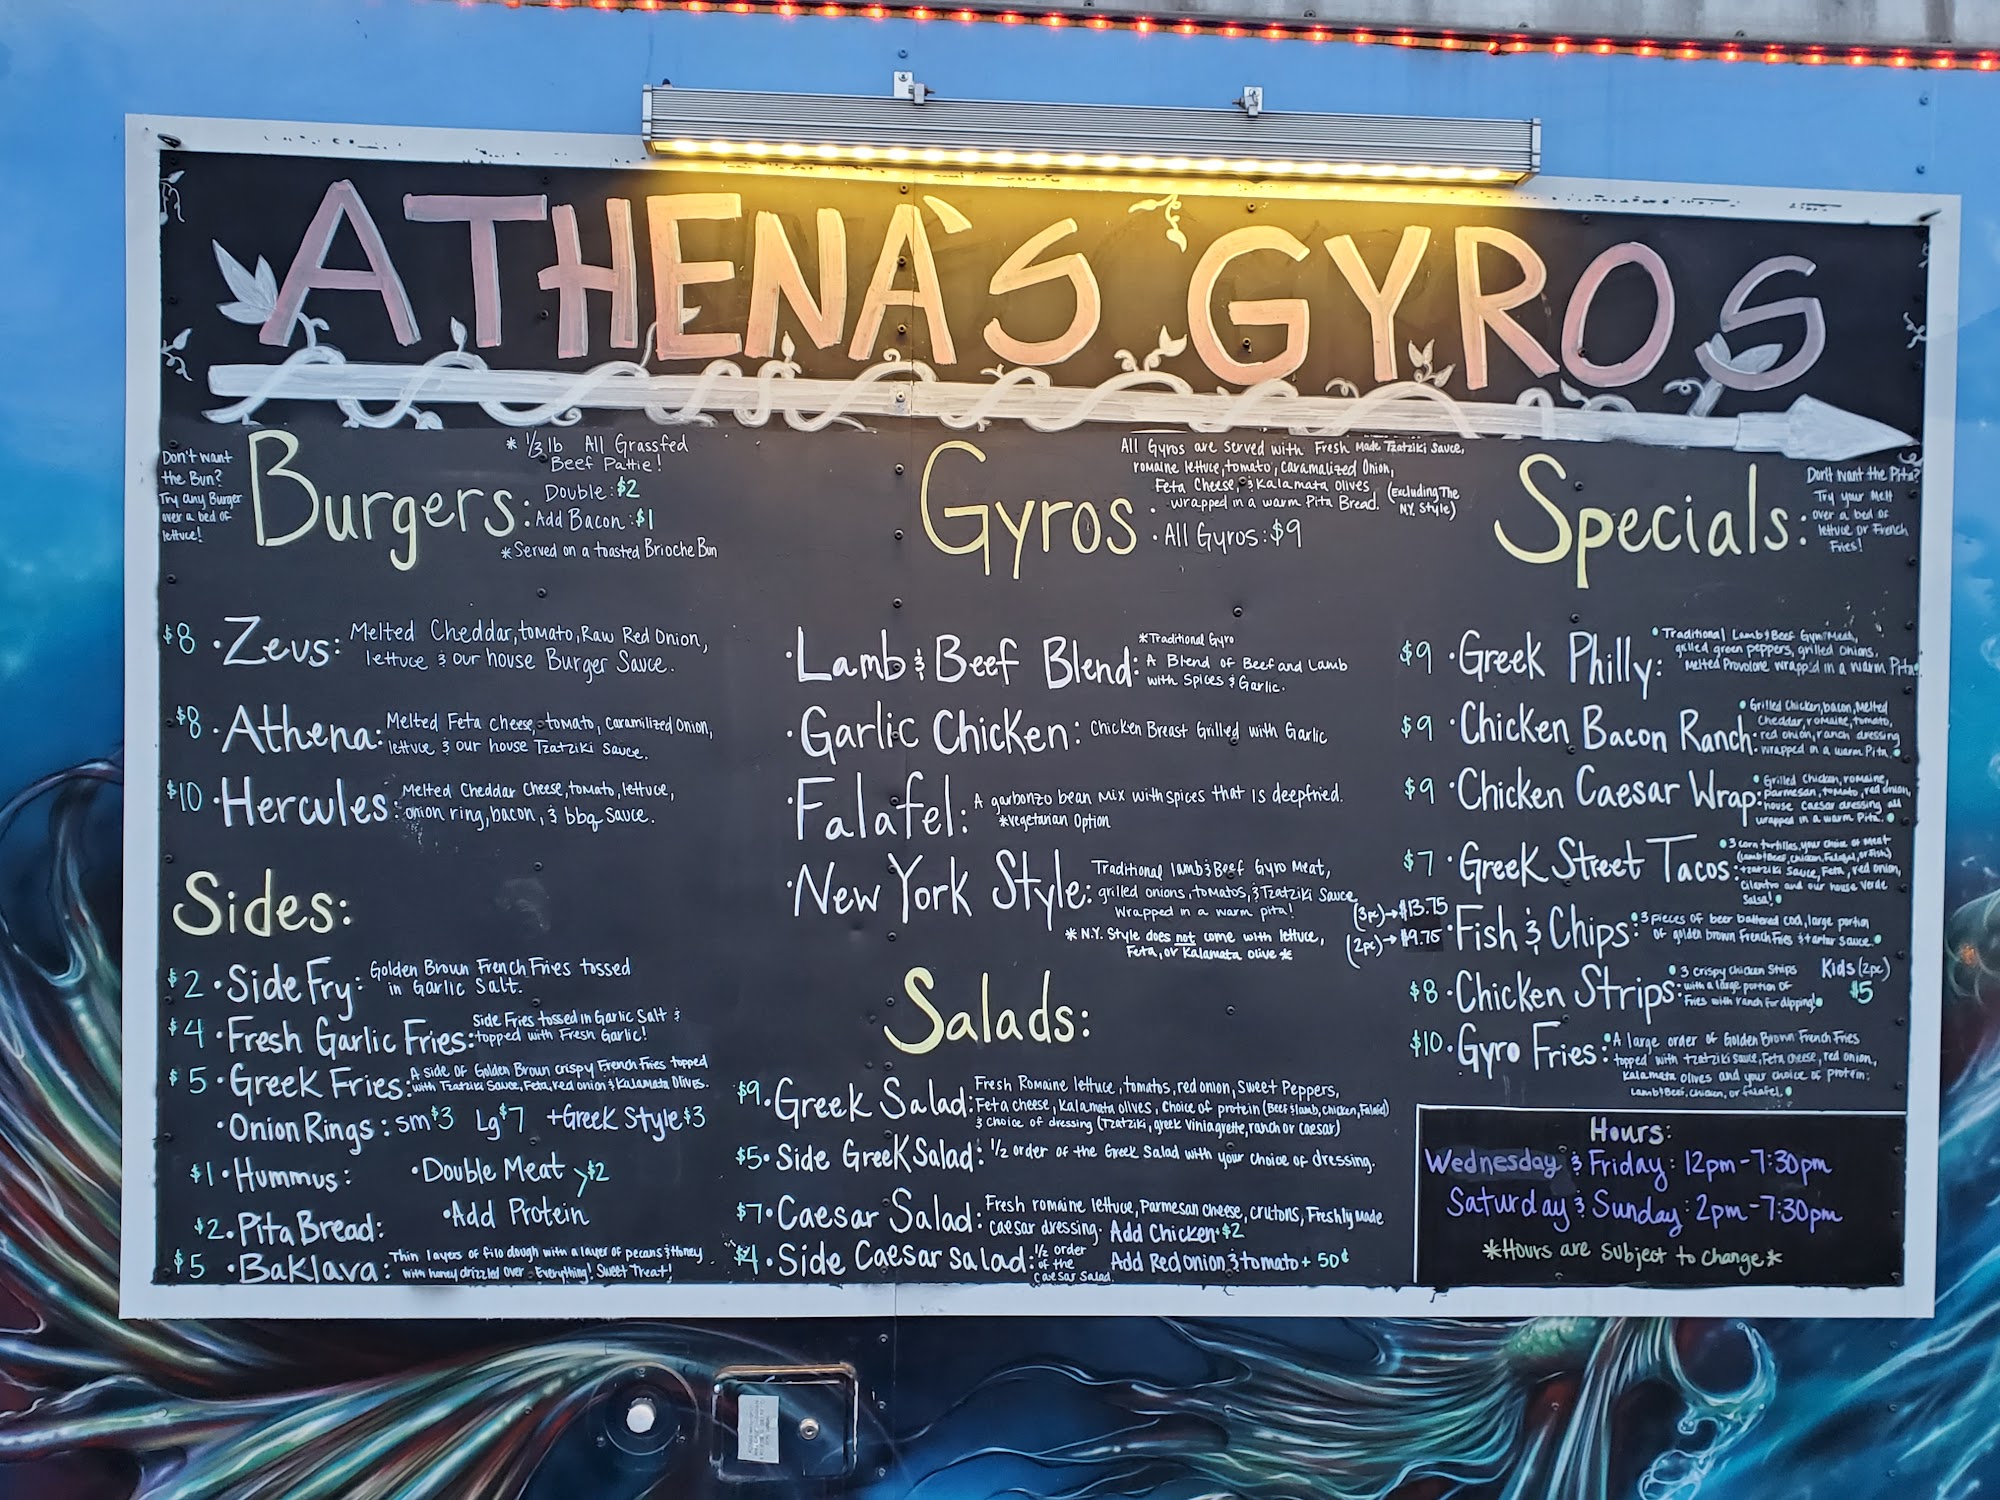 ATHENA'S GYROS
Don't want
the Bun?
Try any Burger
over a bed of
lettuce!
Burgers:
* 1/3 lb All Grassfed
Beef Pattie!
Double: $2
Add Bacon: $1
*Served on a toasted Brioche Bun
$8 · Zeus: Melted Cheddar, tomato, Raw Red Onion,
lettuce & our house Burger Sauce.
$8 · Athena: Melted Feta cheese, tomato, caramilized onion,
lettuce & our house Tzatziki sauce.
$10 · Hercules: Melted Cheddar Cheese, tomato, lettuce,
onion ring, bacon, & bbq sauce.
Sides:
$2 · Side Fry: Golden Brown French Fries tossed
in Garlic Salt.
$4 · Fresh Garlic Fries: Side Fries tossed in Garlic Salt &
topped with Fresh Garlic!
$5 · Greek Fries: A side of Golden Brown crispy French Fries topped
with Tzatziki Sauce, Feta, red onion & Kalamata Olives.
· Onion Rings: sm $3 Lg $7 + Greek Style $3
$1 · Hummus: · Double Meat >$2
$2 · Pita Bread: · Add Protein
$5 · Baklava: Thin layers of filo dough with a layer of pecans & Honey
with honey drizzled over Everything! Sweet Treat!
Gyros
All Gyros are served with Fresh Made Tzatziki Sauce,
romaine lettuce, tomato, caramalized Onion,
Feta Cheese, & Kalamata olives
wrapped in a warm Pita Bread. (Excluding The
N.Y. Style)
· All Gyros: $9
· Lamb & Beef Blend: *Traditional Gyro
A Blend of Beef and Lamb
with Spices & Garlic.
· Garlic Chicken: Chicken Breast Grilled with Garlic
· Falafel: A garbonzo bean mix with spices that is deepfried.
*Vegetarian Option
· New York Style: Traditional lamb & Beef Gyro Meat,
grilled onions, tomatos, & Tzatziki Sauce
Wrapped in a warm pita!
* N.Y. Style does not come with lettuce,
Feta, or Kalamata olive *
Salads:
$9 · Greek Salad: Fresh Romaine lettuce, tomatos, red onion, Sweet Peppers,
Feta cheese, Kalamata olives, choice of protein (Beef & lamb, chicken, Falafel)
& choice of dressing (Tzatziki, greek Viniagrette, ranch or caesar)
$5 · Side Greek Salad: 1/2 order of the Greek Salad with your choice of dressing.
$7 · Caesar Salad: Fresh romaine lettuce, Parmesan cheese, crutons, Freshly Made
caesar dressing. Add Chicken · $2
$4 · Side Caesar salad: 1/2 order
of the
Caesar Salad.
Add Red onion & tomato + 50¢
Specials:
Don't want the Pita?
Try your Melt
over a bed of
lettuce or French
Fries!
$9 · Greek Philly: Traditional Lamb & Beef Gyro Meat,
grilled green peppers, grilled onions,
Melted Provolone wrapped in a warm Pita.
$9 · Chicken Bacon Ranch: Grilled Chicken, bacon, Melted
Cheddar, romaine, tomato,
red onion, ranch dressing
wrapped in a warm Pita.
$9 · Chicken Caesar Wrap: Grilled Chicken, romaine,
parmesan, tomato, red onion,
house caesar dressing all
wrapped in a warm Pita.
$7 · Greek Street Tacos: 3 corn tortillas, your choice of Meat
(Lamb & Beef, chicken, Falafel, or Fish)
tzatziki Sauce, Feta, red onion,
Cilantro and our house Verde
Salsa!
(3pc) → $13.75
(2pc) → $9.75
· Fish & Chips: 3 pieces of beer battered cod, large portion
of golden brown French Fries & tartar sauce.
$8 · Chicken Strips: 3 Crispy chicken Strips
with a large portion of
Fries with ranch for dipping!
Kids (2pc)
$5
$10 · Gyro Fries: A large order of Golden Brown French Fries
topped with tzatziki sauce, Feta cheese, red onion,
Kalamata olives and your choice of protein:
Lamb & Beef, chicken, or falafel.
Hours:
Wednesday & Friday: 12pm-7:30pm
Saturday & Sunday: 2pm-7:30pm
*Hours are subject to change*